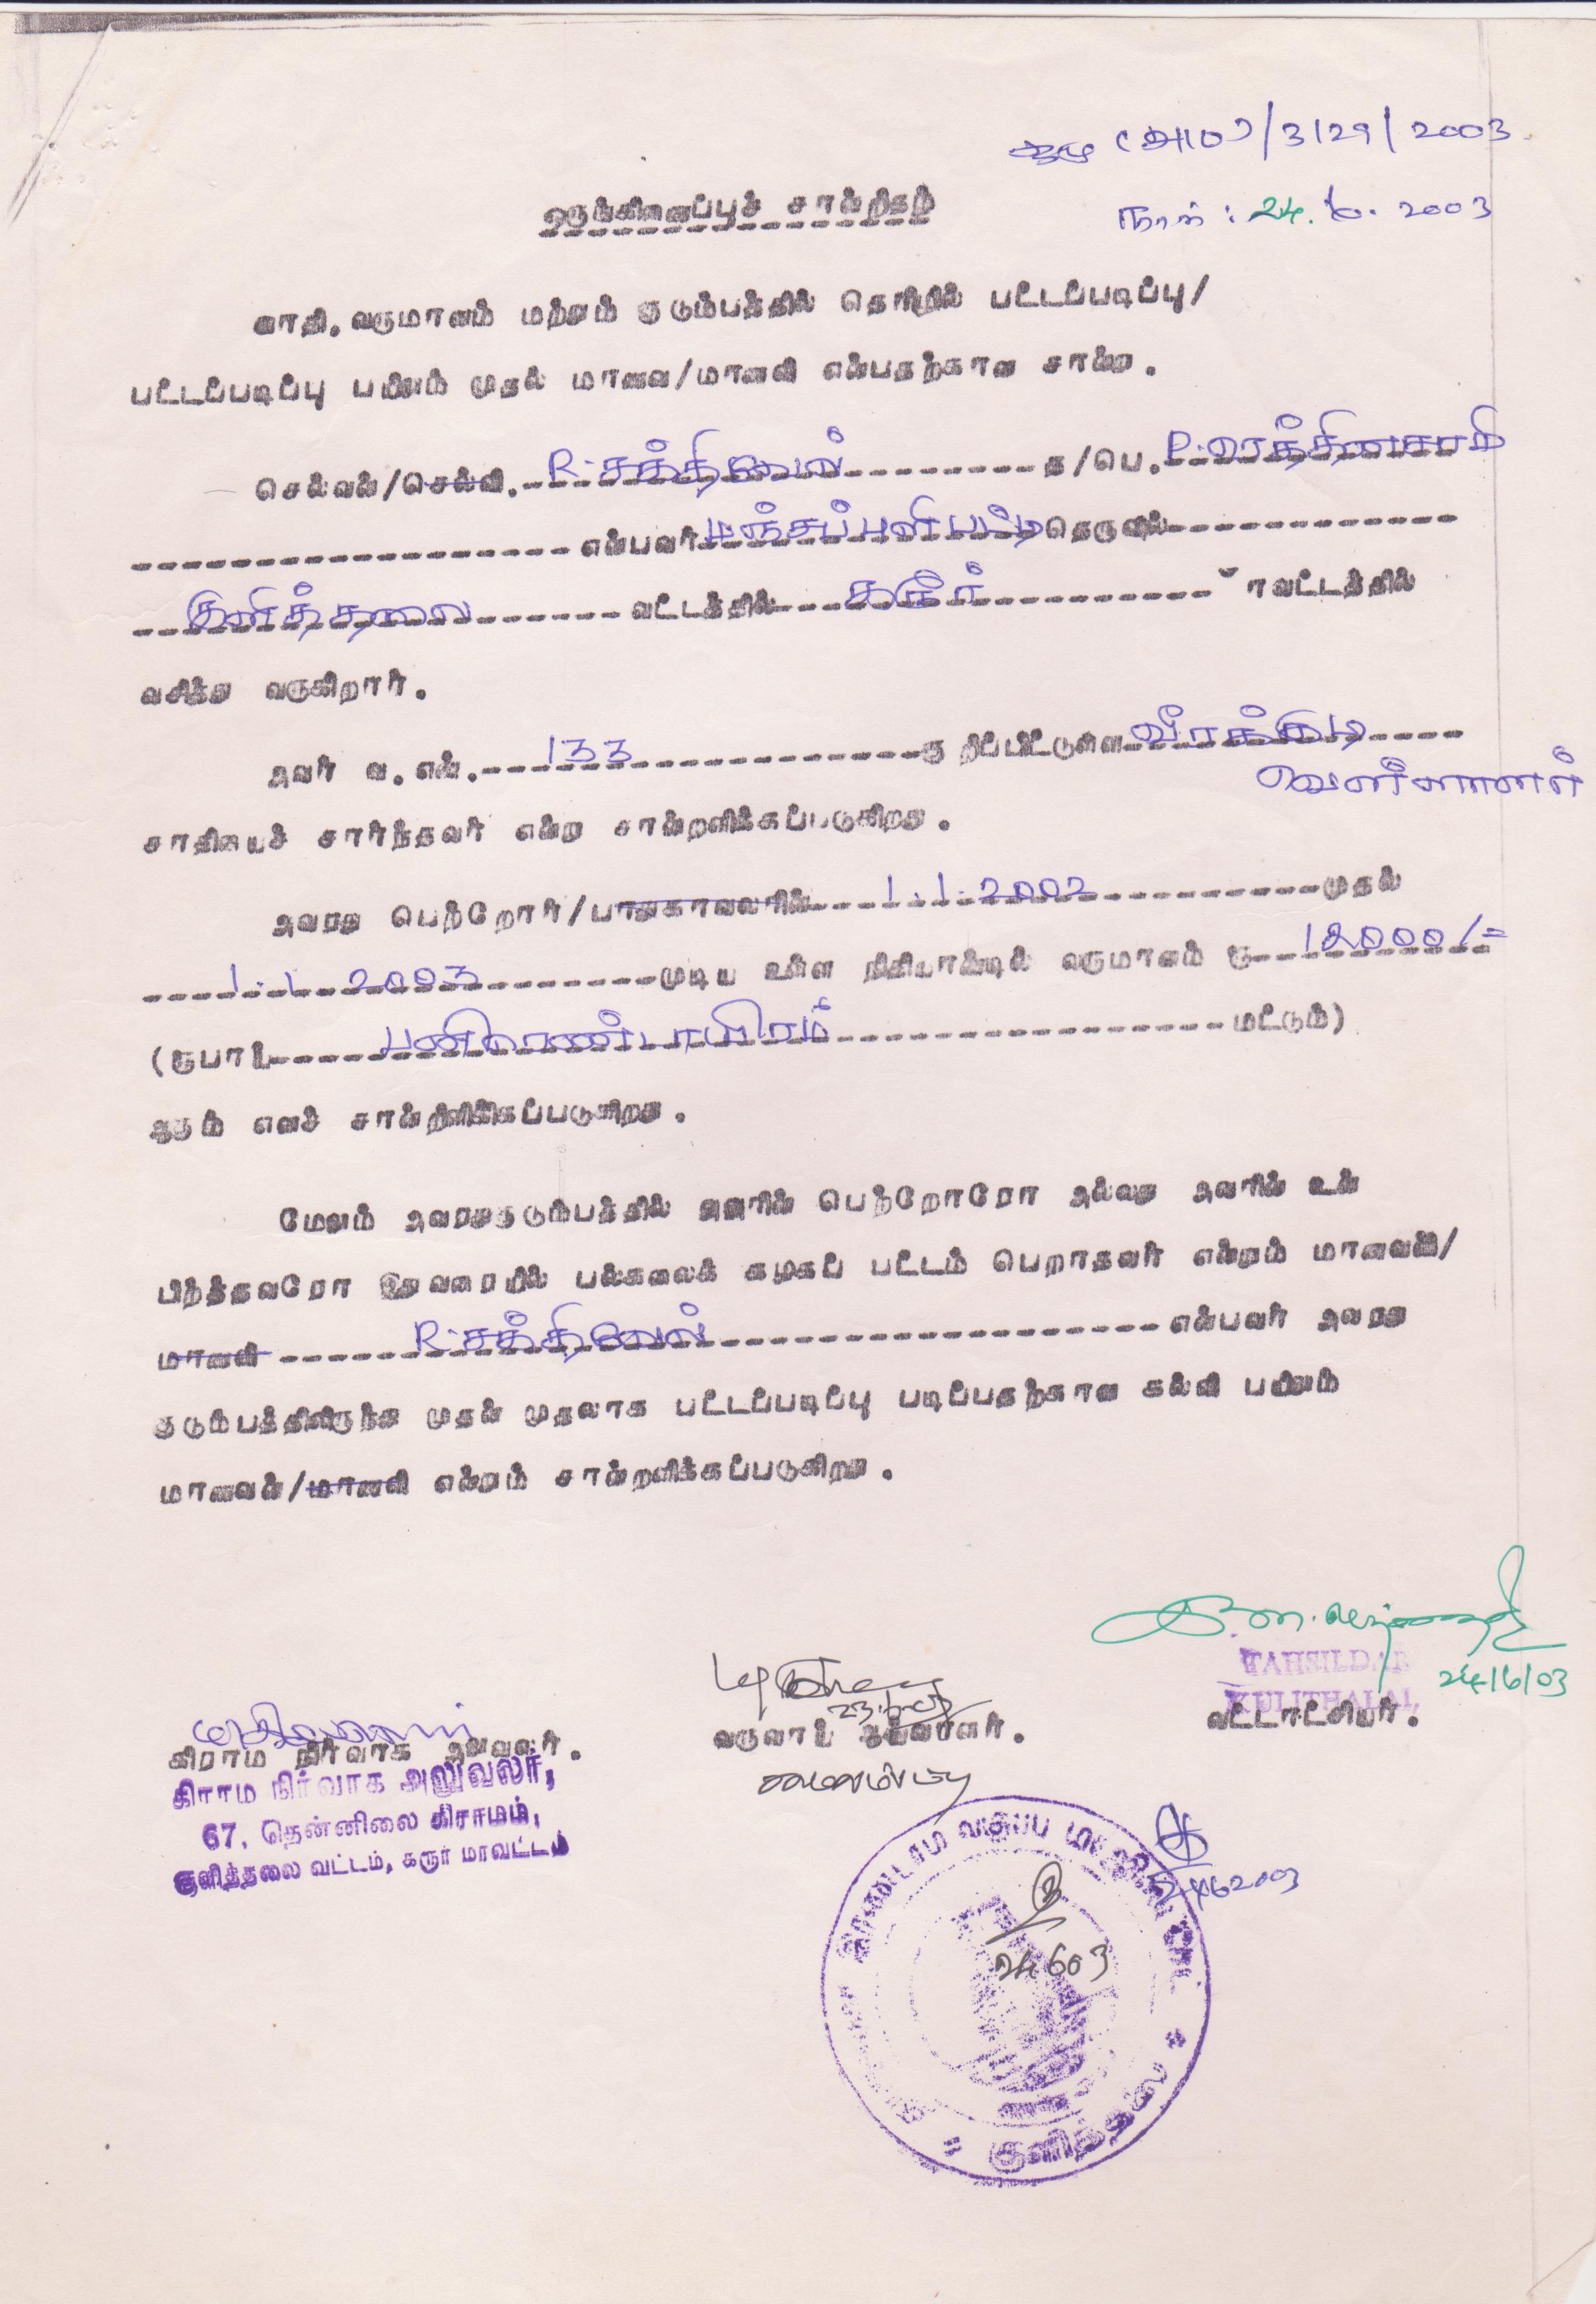 (அ1) / 3129 / 2003
நாள் : 24. 6. 2003
ஒருங்கிணைப்புச் சான்றிதழ்
சாதி. வருமானம் மற்றும் குடும்பத்தில் தொழில் பட்டப்படிப்பு/
பட்டப்படிப்பு பயிலும் முதல் மாணவ/மாணவி என்பதற்கான சான்று.
செல்வன்/செல்வி. R. சக்திவேல் த/பெ. P. ரெத்தினசாமி
என்பவர் மஞ்சப்புளிபட்டி தெருவில்
குளித்தலை வட்டத்தில் கரூர் மாவட்டத்தில்
வசித்து வருகிறார்.
அவர் வ. எண். 133 குறிப்பிட்டுள்ள வீரக்கொடி
வெள்ளாளர்
சாதியைச் சார்ந்தவர் என்று சான்றளிக்கப்படுகிறது.
அவரது பெற்றோர்/பாதுகாவலரின் 1.1.2002 முதல்
1.1.2003 முடிய உள்ள நிதியாண்டில் வருமானம் ரூ 12000/=
(ரூபாய் பனிரெண்டாயிரம் மட்டும்)
ஆகும் எனச் சான்றளிக்கப்படுகிறது.
மேலும் அவரது குடும்பத்தில் அவரின் பெற்றோரோ அல்லது அவரின் உடன்
பிறந்தவரோ இதுவரையில் பல்கலைக் கழகப் பட்டம் பெறாதவர் என்றும் மாணவன்/
மாணவி R. சக்திவேல் என்பவர் அவரது
குடும்பத்திலிருந்து முதன் முதலாக பட்டப்படிப்பு படிப்பதற்கான கல்வி பயிலும்
மாணவன்/மாணவி என்றும் சான்றளிக்கப்படுகிறது.
TAHSILDAR
KULITHALAI,
24/6/03
வட்டாட்சியர்.
வருவாய் ஆய்வாளர்.
கிராம நிர்வாக அலுவலர்.
கிராம நிர்வாக அலுவலர்,
67, தென்னிலை கிராமம்,
குளித்தலை வட்டம், கரூர் மாவட்டம்
24.6.2003
24.6.03
குளித்தலை